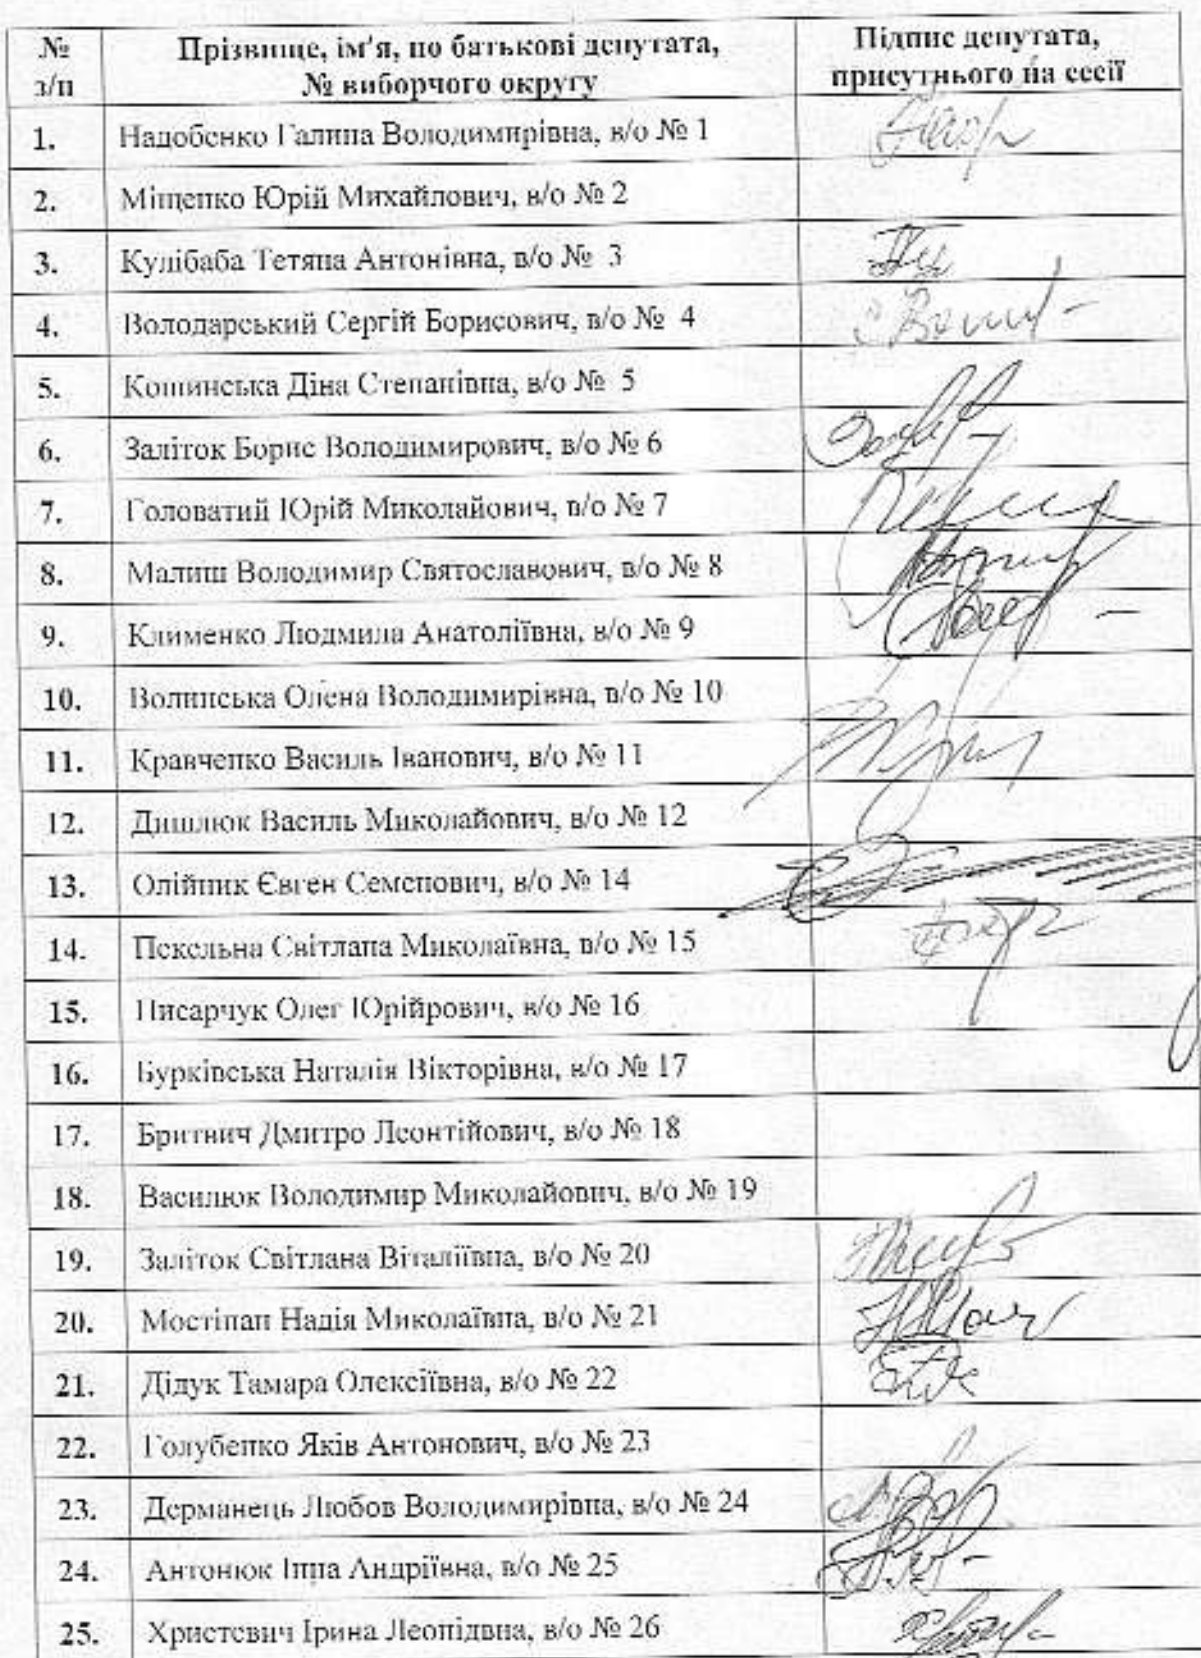 № з/п
Прізвище, ім'я, по батькові депутата, № виборчого округу
Підпис депутата, присутнього на сесії
1. Надобенко Галина Володимирівна, в/о № 1
2. Міщенко Юрій Михайлович, в/о № 2
3. Кулібаба Тетяна Антонівна, в/о № 3
4. Володарський Сергій Борисович, в/о № 4
5. Кошинська Діна Степанівна, в/о № 5
6. Заліток Борис Володимирович, в/о № 6
7. Головатий Юрій Миколайович, в/о № 7
8. Малиш Володимир Святославович, в/о № 8
9. Клименко Людмила Анатоліївна, в/о № 9
10. Волинська Олена Володимирівна, в/о № 10
11. Кравченко Василь Іванович, в/о № 11
12. Дишлюк Василь Миколайович, в/о № 12
13. Олійник Євген Семенович, в/о № 14
14. Пекельна Світлана Миколаївна, в/о № 15
15. Писарчук Олег Юрійрович, в/о № 16
16. Бурківська Наталія Вікторівна, в/о № 17
17. Бритвич Дмитро Леонтійович, в/о № 18
18. Василюк Володимир Миколайович, в/о № 19
19. Заліток Світлана Віталіївна, в/о № 20
20. Мостіпан Надія Миколаївна, в/о № 21
21. Дідук Тамара Олексіївна, в/о № 22
22. Голубенко Яків Антонович, в/о № 23
23. Дерманець Любов Володимирівна, в/о № 24
24. Антонюк Інна Андріївна, в/о № 25
25. Христевич Ірина Леонідвна, в/о № 26